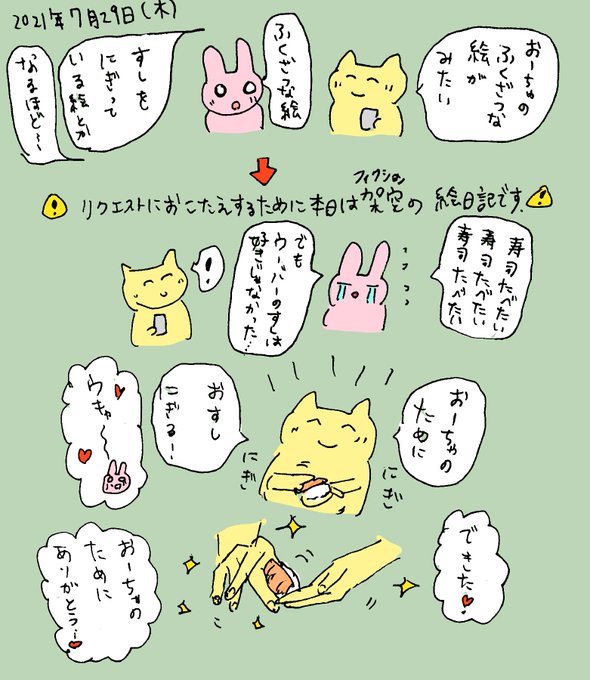 2021年7月29日(木)
おーちゃの
ふくざつな
絵が
みたい
ふくざつな絵
すしを
にぎって
いる絵とか
なるほど〜
リクエストにおこたえするために本日は架空の絵日記です。
フィクション
寿司たべたい
寿司たべたい
寿司たべたい
でも
ウーバーのすしは
好きじゃなかった…
!
おーちゃの
ために
おすし
にぎる!
にぎ
にぎ
ウキャー
できた
おーちゃの
ために
ありがとう…